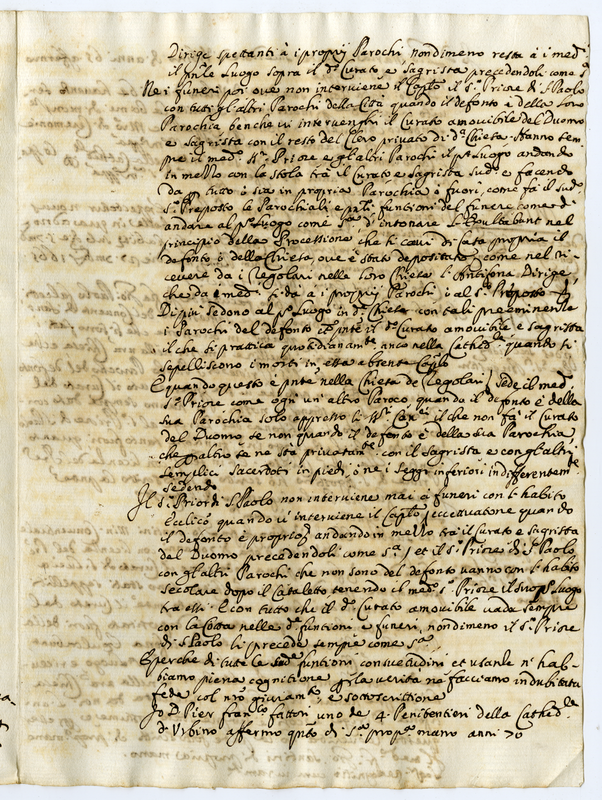 Dirige spettanti à i proprij Parochi, nondimeno resta à i med.i
il p.mo Luogo sopra il d.o Curato, e Sagrista precedendoli come s.a
Ne i funeri poi oue non interviene il Cap.lo il S.r Priore di S. Paolo
con tutti gl'altri Parochi della Città quando il defonto è della loro
Parochia benche ui intervenghi il Curato amouibile del Duomo
e Sagrista con il resto del Clero privato di d.a Chiesa. Hanno sem-
pre il med.o S.r Priore e gl'altri Parochi il p.o Luogo andando
in mezzo con la stola trà il Curato e Sagrista sud.i e facendo
da p tutto ò sia in propria Parochia ò fuori, come fà il sud.o
S.r Preposto le Parochiali e funtioni del funere come di
andare al p.o Luogo come s.a d'intonare l'Exultabunt nel
principio della Processione che si caui di Casa propria il
defonto ò della Chiesa, oue è stato depositato, come nel ri-
cevere da i Regolari nella loro Chiesa l'Antifona Dirige,
che da i med.i si dà a i proprij Parochi ò al S.r Preposto
Di più sedono al p.o Luogo in d.a Chiesa con tali preeminenze
i Parochi del defonto il d.o Curato amouibile e Sagrista
il che si prattica quotidianam.te anco nella Cathed.le quando si
sepelliscono i morti in essa absente Cap.lo
E quando questo è p.nte nella Chiesa de Regolari sede il med.o
S.r Priore come ogn un'altro Paroco quando il defonto è della
sua Parochia solo appresso li SS.ri Can.ci il che non fà il Curato
del Duomo se non quando il defonto è della sua Parochia,
che p altro se ne stà privatam.te con il Sagrista e con gl'altri
semplici Sacerdoti in piedi, ò ne i seggi inferiori indifferentem.te
sedendo
Il S.r Prior di S. Paolo non interviene mai à funeri con l'habito
Ecclico quando ui interviene il Cap.lo eccettuatone quando
il defonto è proprio andando in mezzo trà il Curato e Sagrista
del Duomo precedendoli come s.a et il S.r Priore di S. Paolo
con gl'altri Parochi che non sono del defonto uanno con l'habito
secolare dopo il Cataletto tenendo il med.o S.r Priore il suo p.o Luogo
tra essi. E con tutto che il d.o Curato amouibile uada sempre
con la Cotta nelle d.e funtioni e funeri, nondimeno il S.r Priore
di S. Paolo li precede sempre come s.a
E perche di tutte le sud.e funtioni consuetudini et usanze n' hab-
biamo piena cognitione p la uerità ne facciamo indubitata
fede col nro giuram.to, e sottoscrittione
Io D. Pier Fran.co Fattori uno de 4 Penitentieri della Cathed.le
d'Urbino affermo q.nto di s.a prop.a mano anni 70